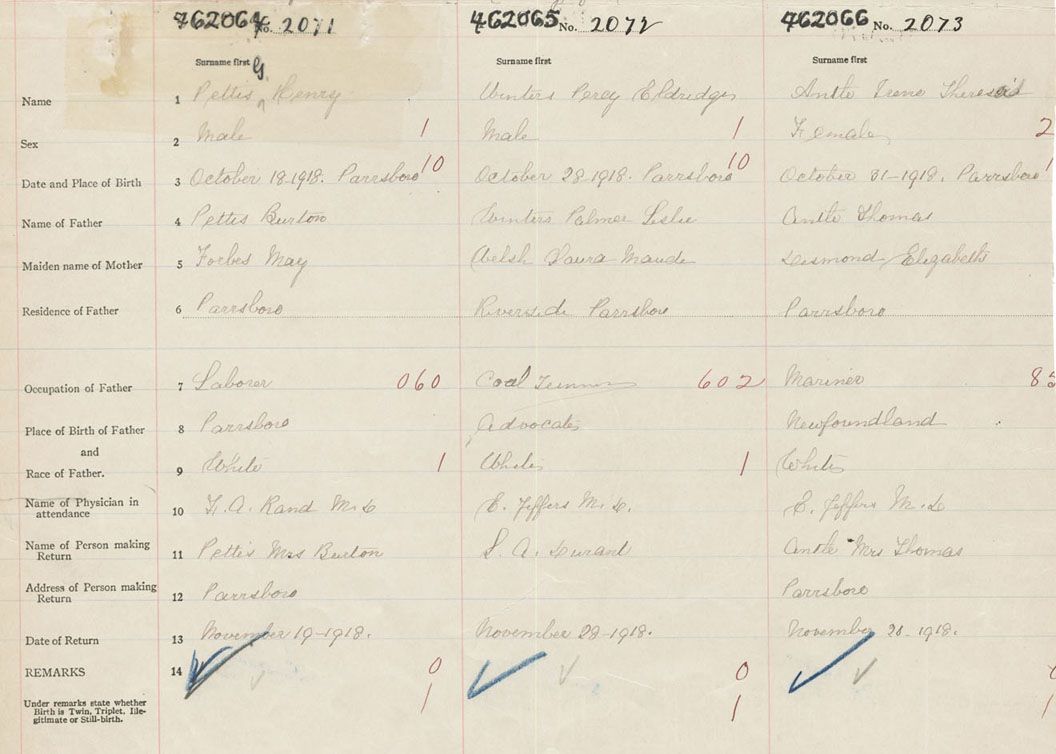 462064 No. 2071 462065 No. 2072 462066 No. 2073
Surname first G. Surname first Surname first
Name 1 Pettis Henry Winters Percy Eldredge Antle Irene Theresa
Sex 2 Male 1 Male 1 Female 2
Date and Place of Birth 3 October 18-1918. Parrsboro 10 October 28-1918. Parrsboro 10 October 31-1918. Parrsboro 1
Name of Father 4 Pettis Burton Winters Palmer Leslie Antle Thomas
Maiden name of Mother 5 Forbes May Welsh Laura Maude Desmond Elizabeth
Residence of Father 6 Parrsboro Riverside Parrsboro Parrsboro
Occupation of Father 7 Laborer 060 Coal 602 Mariner 85
Place of Birth of Father 8 Parrsboro Advocate Newfoundland
and
Race of Father. 9 White 1 White 1 White
Name of Physician in
attendance 10 F. A. Rand M.D E. Jeffers M.D. E. Jeffers M.D
Name of Person making
Return 11 Pettis Mrs Burton S. A. Durant Antle Mrs Thomas
Address of Person making
Return 12 Parrsboro Parrsboro
Date of Return 13 November 19-1918. November 29-1918. November 20-1918.
REMARKS 14 0 0
Under remarks state whether 1 1 1
Birth is Twin, Triplet, Ille-
gitimate or Still-birth.